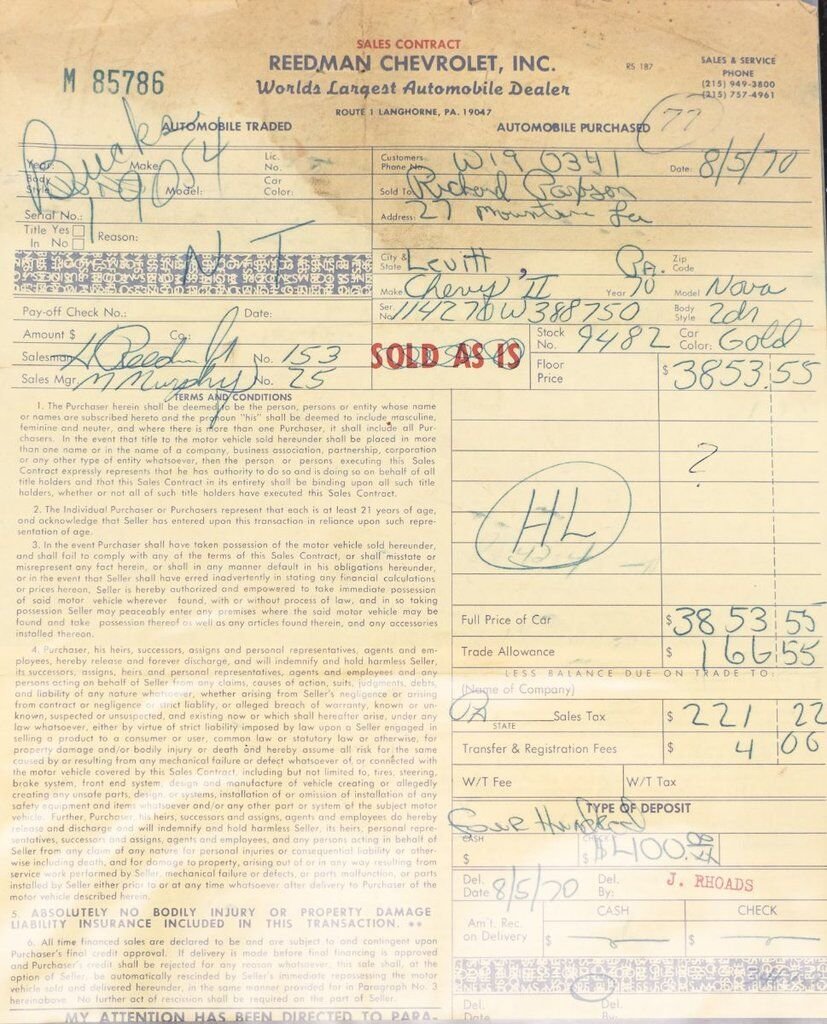 SALES CONTRACT
REEDMAN CHEVROLET, INC.
Worlds Largest Automobile Dealer
ROUTE 1 LANGHORNE, PA. 19047
RS 187
SALES & SERVICE
PHONE
(215) 949-3800
(215) 757-4961
M 85786
AUTOMOBILE TRADED
AUTOMOBILE PURCHASED 77
Bucks
Year: Make:
Lic. No.
Body Style Model:
Car Color:
Serial No.:
Title Yes
In No
Reason:
N T
Pay-off Check No.: Date:
Amount $ Co.
Salesman No. 153
Sales Mgr. M Murphy No. 25
Customers Phone No. W19 0341 Date: 8/5/70
Sold To Richard
Address: 27 Mountain
City & State Levitt, Pa. Zip Code
Make Chevy II Year 70 Model Nova
Ser No. 114270W388750 Body Style 2dr
Stock No. 9482 Car Color: Gold
SOLD AS IS
Floor Price $ 3853.55
?
HL
Full Price of Car $ 3853 55
Trade Allowance $ 166 55
LESS BALANCE DUE ON TRADE TO:
(Name of Company)
Pa STATE Sales Tax $ 221 22
Transfer & Registration Fees $ 4 00
W/T Fee W/T Tax
TYPE OF DEPOSIT
Four Hundred
CASH $
$ 400.
Del. Date 8/5/70 Del. By: J. RHOADS
CASH CHECK
Am't. Rec. on Delivery $ $
Del. Date
Del. By:
TERMS AND CONDITIONS
1. The Purchaser herein shall be deemed to be the person, persons or entity whose name
or names are subscribed hereto and the pronoun "his" shall be deemed to include masculine,
feminine and neuter, and where there is more than one Purchaser, it shall include all Pur-
chasers. In the event that title to the motor vehicle sold hereunder shall be placed in more
than one name or in the name of a company, business association, partnership, corporation
or any other type of entity whatsoever, then the person or persons executing this Sales
Contract expressly represents that he has authority to do so and is doing so on behalf of all
title holders and that this Sales Contract in its entirety shall be binding upon all such title
holders, whether or not all of such title holders have executed this Sales Contract.
2. The Individual Purchaser or Purchasers represent that each is at least 21 years of age,
and acknowledge that Seller has entered upon this transaction in reliance upon such repre-
sentation of age.
3. In the event Purchaser shall have taken possession of the motor vehicle sold hereunder,
and shall fail to comply with any of the terms of this Sales Contract, or shall misstate or
misrepresent any fact herein, or shall in any manner default in his obligations hereunder,
or in the event that Seller shall have erred inadvertently in stating any financial calculations
or prices hereon, Seller is hereby authorized and empowered to take immediate possession
of said motor vehicle wherever found, with or without process of law, and in so taking
possession Seller may peaceably enter any premises where the said motor vehicle may be
found and take possession thereof as well as any articles found therein, and any accessories
installed thereon.
4. Purchaser, his heirs, successors, assigns and personal representatives, agents and em-
ployees, hereby release and forever discharge, and will indemnify and hold harmless Seller,
its successors, assigns, heirs and personal representatives, agents and employees and any
persons acting in behalf of Seller from any claims, causes of action, suits, judgments, debts,
and liability of any nature whatsoever, whether arising from Seller's negligence or arising
from contract or negligence or strict liablity, or alleged breach of warranty, known or un-
known, suspected or unsuspected, and existing now or which shall hereafter arise, under any
law whatsoever, either by virtue of strict liability imposed by law upon a Seller engaged in
selling a product to a consumer or user, common law or statutory law or otherwise, for
property damage and/or bodily injury or death and hereby assume all risk for the same
caused by or resulting from any mechanical failure or defect whatsoever of, or connected with
the motor vehicle covered by this Sales Contract, including but not limited to, tires, steering,
brake system, front end system, design and manufacture of vehicle creating or allegedly
creating any unsafe parts, design, or systems, installation of or omission of installation of any
safety equipment and items whatsoever and/or any other part or system of the subject motor
vehicle. Further, Purchaser, his heirs, successors and assigns, agents and employees do hereby
release and discharge and will indemnify and hold harmless Seller, its heirs, personal repre-
sentatives, successors and assigns, agents and employees, and any persons acting in behalf of
Seller from any claim of any nature for personal injuries or consequential liability or other-
wise including death, and for damage to property, arising out of or in any way resulting from
service work performed by Seller, mechanical failure or defects, or parts malfunction, or parts
installed by Seller either prior to or at any time whatsoever after delivery to Purchaser of the
motor vehicle described herein.
5. ABSOLUTELY NO BODILY INJURY OR PROPERTY DAMAGE
LIABILITY INSURANCE INCLUDED IN THIS TRANSACTION. **
6. All time financed sales are declared to be and are subject to and contingent upon
Purchaser's final credit approval. If delivery is made before final financing is approved
and Purchaser's credit shall be rejected for any reason whatsoever, this sale shall, at the
option of Seller, be automatically rescinded by Seller's immediate repossessing the motor
vehicle sold and delivered hereunder, in the same manner provided for in Paragraph No. 3
hereinabove. No further act of rescission shall be required on the part of Seller.
MY ATTENTION HAS BEEN DIRECTED TO PARA-